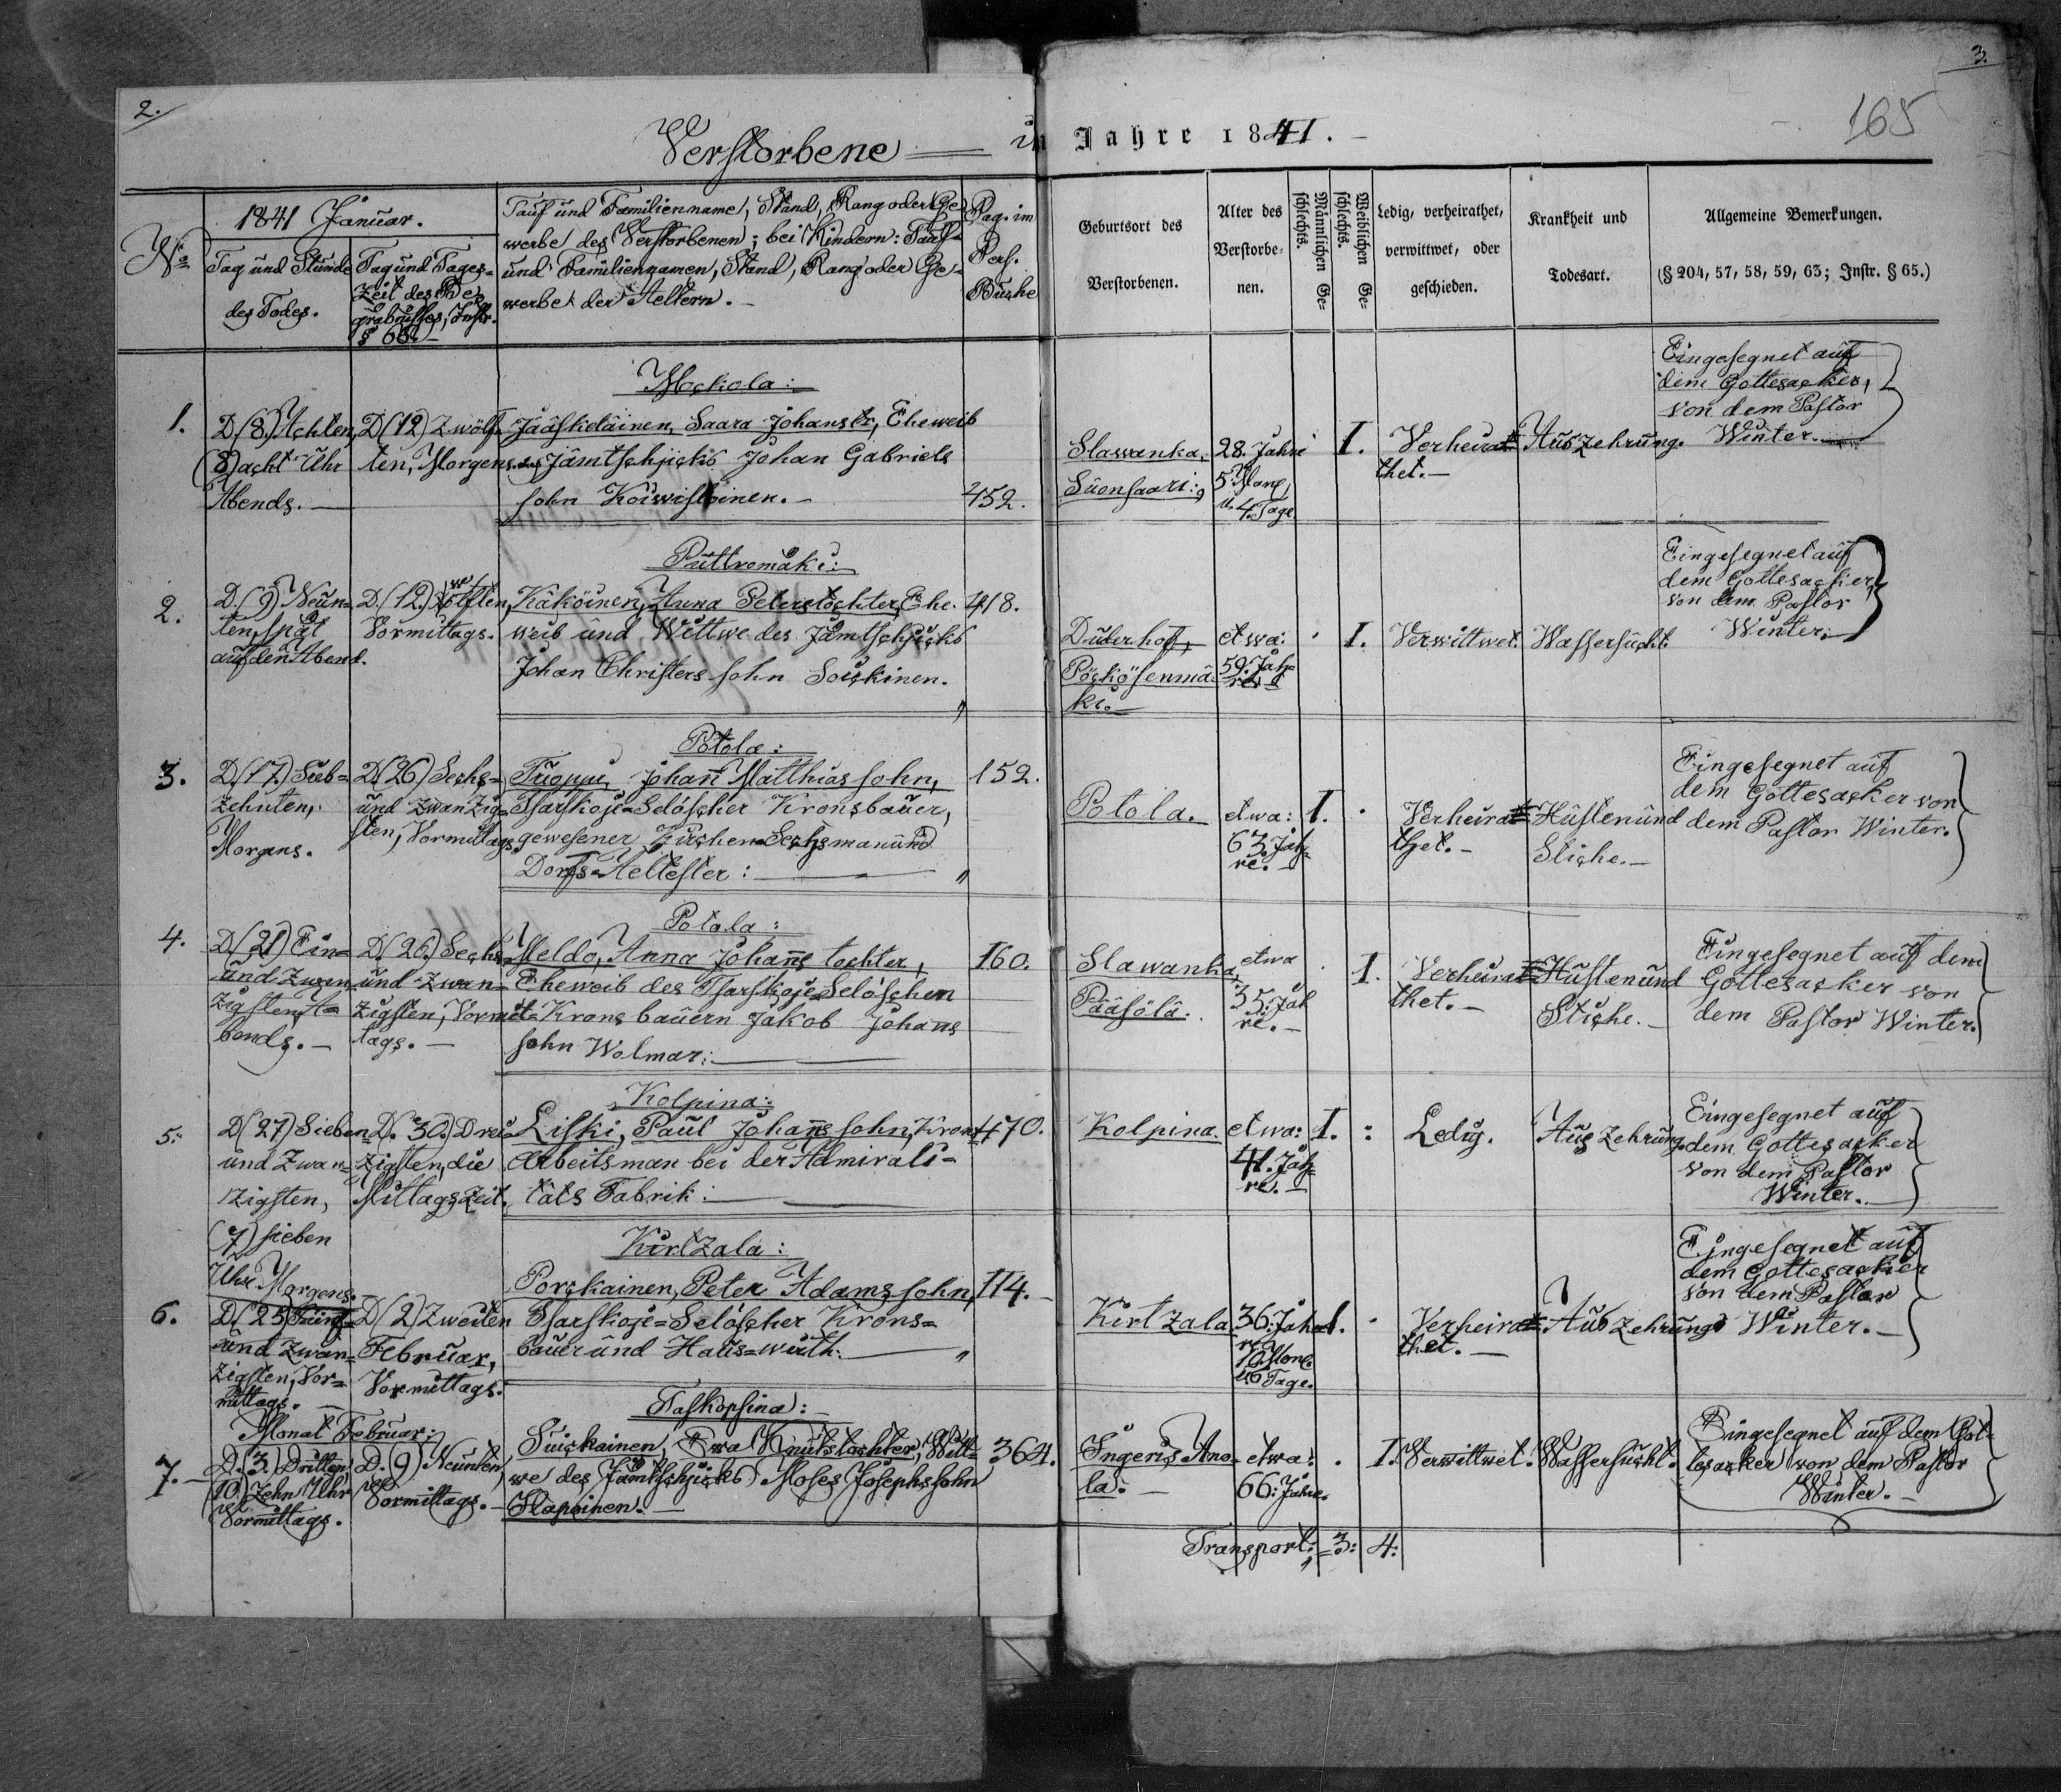 2.
3.
165
Verstorbene in Jahre 1841.
No
1841 Januar.
Tag und Stunde
des Todes.
Tag und Tages=
zeit des Be
gräbnisses, Instr.
§ 63.
Tauf und Familienname, Stand, Rang oder Ge
werbe des Verstorbenen; bei Kindern: Tauf=
und Familiennamen, Stand, Rang oder Ge=
werbe der Aeltern.
Pag. im
Pers.
Buche
Geburtsort des
Verstorbenen.
Alter des
Verstorbe-
nen.
Männlichen Ge-
schlechts.
Weiblichen Ge-
schlechts.
Ledig, verheirathet,
verwittwet, oder
geschieden.
Krankheit und
Todesart.
Allgemeine Bemerkungen.
(§ 204, 57, 58, 59, 63; Instr. § 65.)
Mockola:
1.
D. (8.) Achten,
(8) acht Uhr
Abends.
D. (12) Zwölf
ten, Morgens.
Jääskeläinen, Saara Johanstr, Eheweib
des Jämtschicks Johan Gabriels
sohn Koiwistoinen.
452.
Slawanka,
Suensaari:,
28. Jahre
5 Mong,
u. 4. Tage
I.
Verheira=
thet.
Auszehrung.
Eingesegnet auf
dem Gottesacker,
von dem Pastor
Winter.
Puttromäki:
2.
D. (9) Neun=
ten, spät
auf den Abend.
D. (12.) Zwölften,
Vormittags.
Käköinen, Anna Peterstochter, Ehe-
weib und Wittwe des Jämtschicks
Johan Christers sohn Soickinen.
418.
Duderhof,
Pöckösenmä-
ki.
etwa:
59. Jah=
re.
I.
Verwittwet.
Wassersucht.
Eingesegnet auf
dem Gottesacker
von dem Pastor
Winter.
Potola:
3.
D. (17.) Sieb=
zehnten,
Morgens.
D. (26) Sechs=
und zwanzig=
sten, Vormittags
Johan Matthias sohn,
Tsarskoje=Seloscher Kronsbauer,
gewesener Kuchen=Sechsman und
Dorfs=Aeltester:
152.
Potola.
etwa:
63. Jah=
re.
I.
Verheira=
thet.
Husten und
Stiche.
Eingesegnet auf
dem Gottesacker von
dem Pastor Winter.
Potola:
4.
D. (21) Ein=
und zwan
zigsten, A=
bends.
D. (26.) Sechs
und zwan=
zigsten, Vormit=
tags.
Meldo, Anna Johans tochter,
Eheweib des Tsarskoje=Seloschen
Krons bauern Jakob Johans
sohn Wolmar:
160.
Slawanka,
Pääsölä.
etwa
35: Jah
re.
I.
Verheira=
thet.
Husten und
Stiche.
Eingesegnet auf dem
Gottesacker von
dem Pastor Winter.
Kolpina:
5.
D. (27) Sieben=
und Zwan=
zigsten,
(7) sieben
Uhr Morgens.
D. 30.) Drei=
zigsten, die
Mittagszeit.
Liski, Paul Johans sohn, Krons
Arbeitsman bei der Admirali=
täts Fabrik:
470.
Kolpina.
etwa:
41. Jah=
re.
I.
Ledig.
Auszehrung.
Eingesegnet auf
dem Gottesacker
von dem Pastor
Winter.
Kirtzala:
6.
D. (25) Fünf=
und zwan=
zigsten, Vor=
mittags.
D. (2) Zweiten
Februar,
Vormittags.
Porckainen, Peter Adams sohn,
Tsarskoje=Seloscher Krons=
bauer und Haus=wirth.
114.
Kirtzala
36: Jah
re
10. Mon.
u. 6 Tage.
1.
Verheira=
thet.
Auszehrung.
Eingesegnet auf
dem Gottesacker
von dem Pastor
Winter.
Taskopsina:
Monat Februar:
7.
D. (3.) Dritten,
(10) Zehn Uhr
Vormittags.
D. (9) Neunten,
Vormittags.
Suickainen, Ewa Knutstochter, Witt=
we des Jämtschicks Moses Josephs sohn
Slapoinen.
364.
Ingeris, Ano=
la.
etwa:
66: Jahre.
I.
Verwittwet.
Wassersucht.
Eingesegnet auf dem Got=
tesacker von dem Pastor
Winter.
Transport: 3: 4: